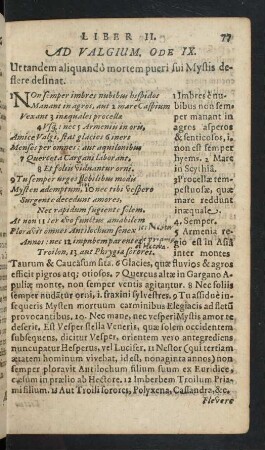 LIBER II. 77
AD VALGIUM, ODE IX.
Ut tandem aliquandò mortem pueri sui Mystis de-
flere desinat.
1 NOn semper imbres nubibus hispidos
Manant in agros, aut 2 mare Caspium
Vexant 3 inæquales procellæ
4 Usq; nec 5 Armeniis in oris,
Amice Valgi, stat glacies 6 iners
Menses per omnes: aut aquilonibus
7 Querceta Gargani laborant,
8 Et foliis viduantur orni.
9 Tu semper urges flebilibus modis
Mysten ademptum, 10 nec tibi vespero
Surgente decedunt amores,
Nec rapidum fugiente solem.
At non 11 ter ævo functus amabilem
Ploravit omnes Antilochum senex
Annos: nec 12 impubem parentes
Troilon, 13 aut Phrygiæ sorores
1 Imbres è nu-
bibus non sem-
per manant in
agros asperos
& senticosos, i.
non est perpes
hyems. 2 Mare
in Scythiâ.
3 Procellæ tem-
pestuosæ, quæ
mare reddunt
inæquale.
4 Semper.
5 Armenia re-
gio est in Asiâ
inter montes
Taurum & Caucasum sita. 6 Glacies, quæ fluvios & agros
efficit pigros atq; otiosos. 7 Quercus altæ in Gargano A-
puliæ monte, non semper ventis agitantur. 8 Nec foliis
semper nudātur orni, i. fraxini sylvestres. 9 Tu assiduè in-
sequeris Mysten mortuum carminibus Elegiacis ad fletū
provocantibus. 10 Nec mane, nec vesperi Mystis amor te
deserit, Est Vesper stella Veneris, quæ solem occidentem
subsequens, dicitur Vesper, orientem vero antegrediens
nuncupatur Hesperus, vel Lucifer. 11 Nestor (qui tertiam
ætatem hominum vivebat, id est, nonaginta annos) non
semper ploravit Antilochum filium suum ex Euridice,
cæsum in prælio ab Hectore. 12 Imberbem Troilum Pria-
mi filium. 13 Aut Troili sorores, Polyxena, Cassandra, &c.
Flevere